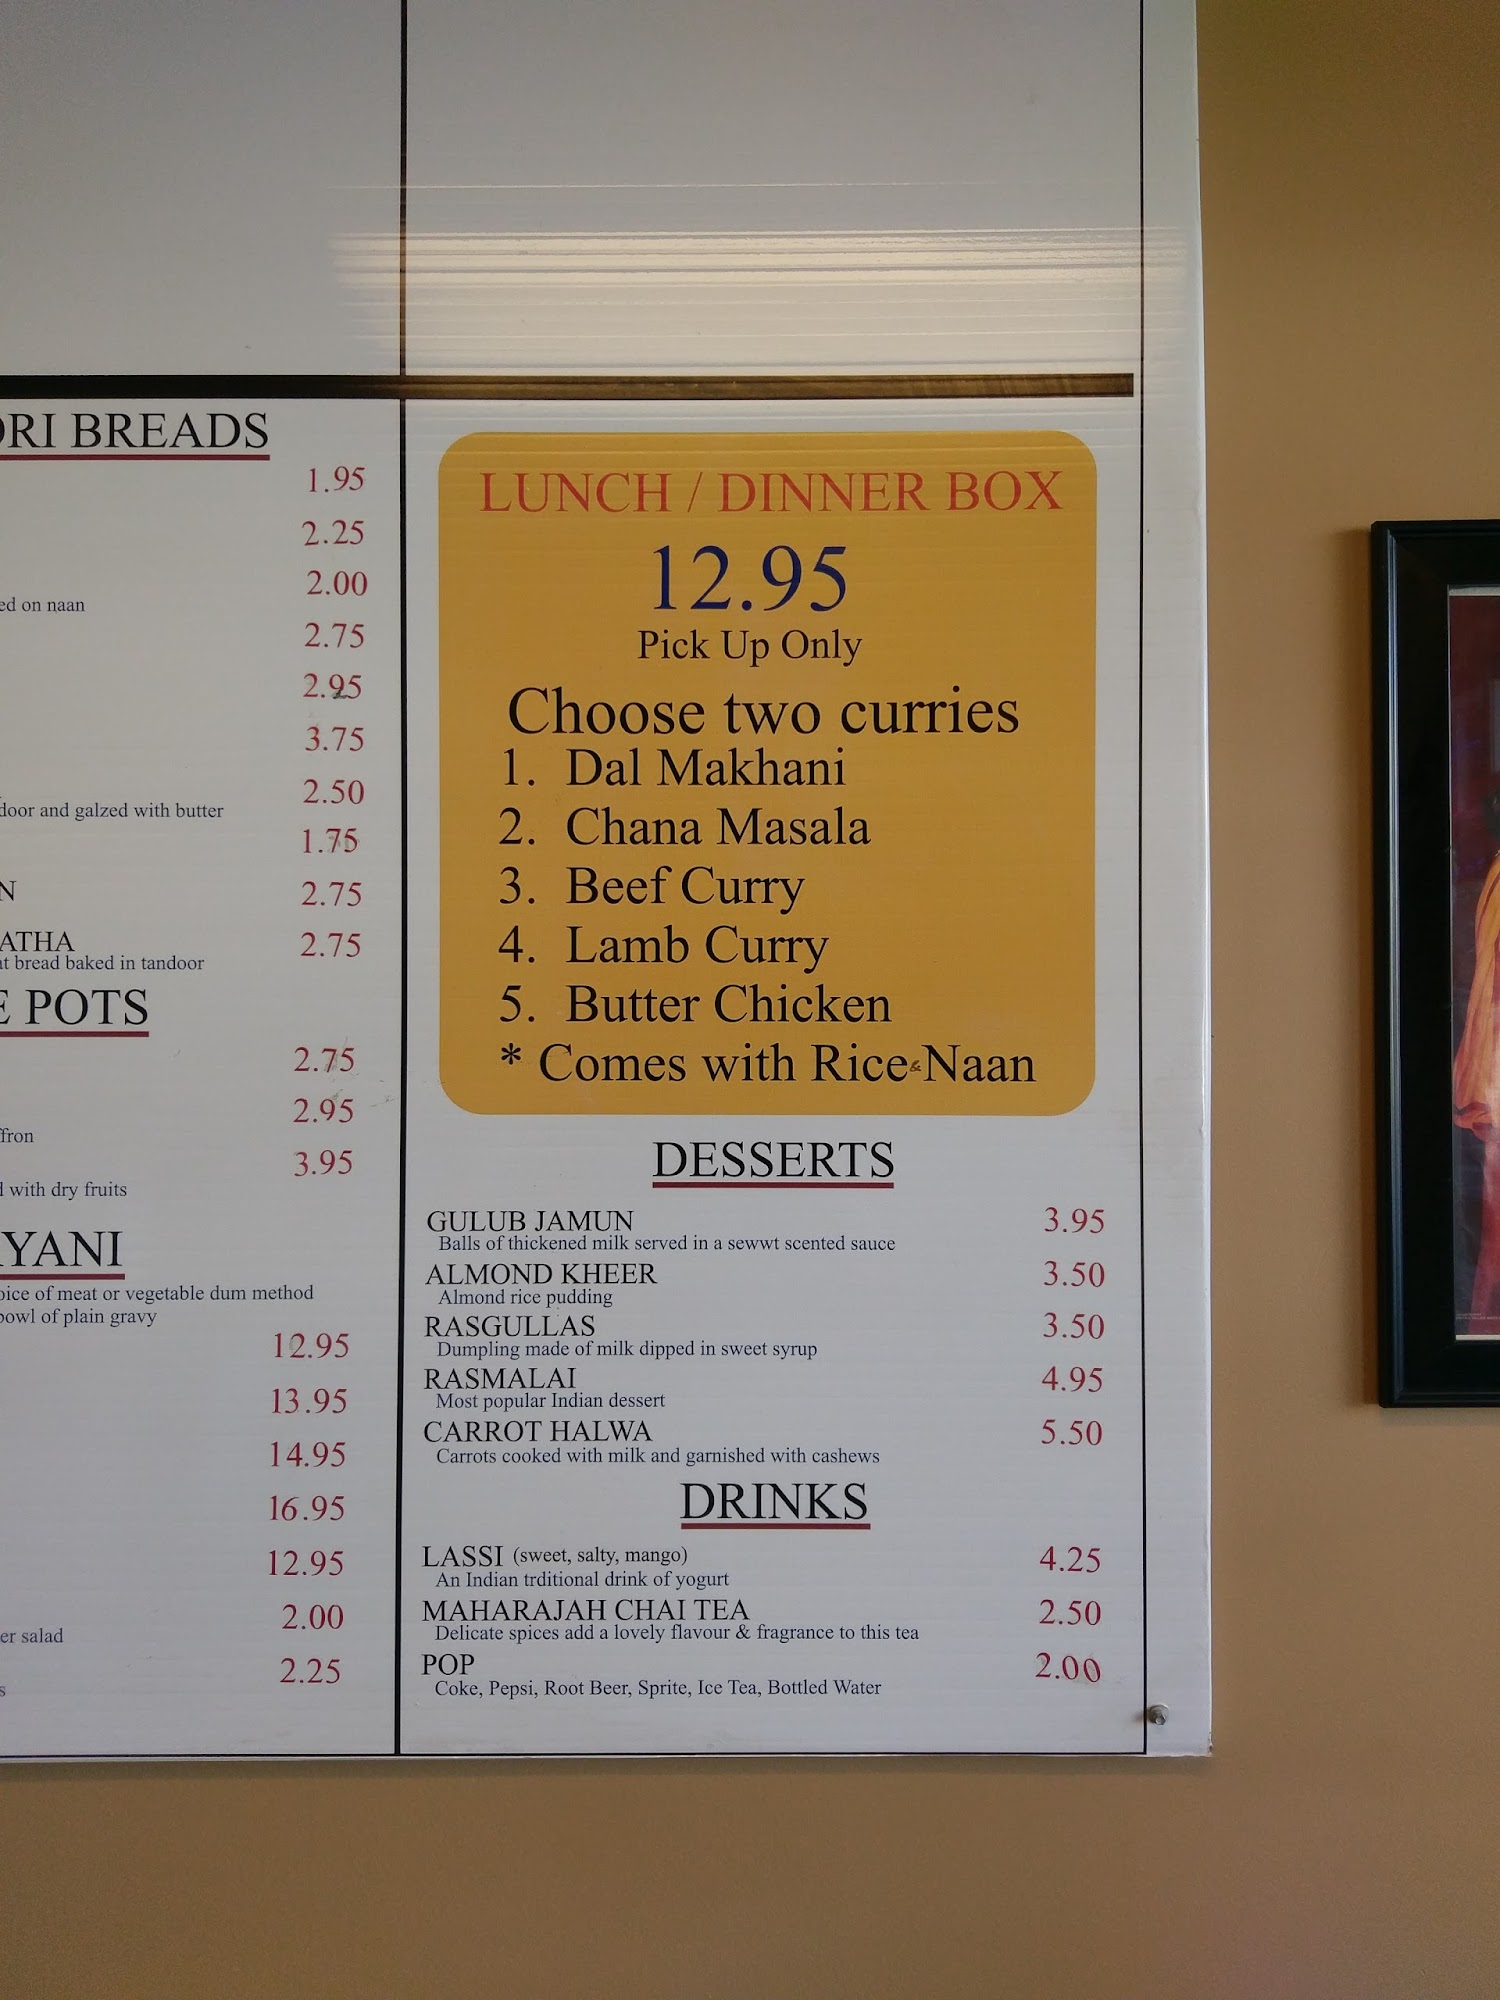 ORI BREADS
1.95
2.25
2.00
ed on naan
2.75
2.95
3.75
2.50
door and galzed with butter
1.75
N 2.75
ATHA 2.75
at bread baked in tandoor
E POTS
2.75
2.95
ffron
3.95
d with dry fruits
YANI
oice of meat or vegetable dum method
bowl of plain gravy
12.95
13.95
14.95
16.95
12.95
2.00
er salad
2.25
s
LUNCH / DINNER BOX
12.95
Pick Up Only
Choose two curries
1. Dal Makhani
2. Chana Masala
3. Beef Curry
4. Lamb Curry
5. Butter Chicken
* Comes with Rice & Naan
DESSERTS
GULUB JAMUN 3.95
Balls of thickened milk served in a sewwt scented sauce
ALMOND KHEER 3.50
Almond rice pudding
RASGULLAS 3.50
Dumpling made of milk dipped in sweet syrup
RASMALAI 4.95
Most popular Indian dessert
CARROT HALWA 5.50
Carrots cooked with milk and garnished with cashews
DRINKS
LASSI (sweet, salty, mango) 4.25
An Indian trditional drink of yogurt
MAHARAJAH CHAI TEA 2.50
Delicate spices add a lovely flavour & fragrance to this tea
POP 2.00
Coke, Pepsi, Root Beer, Sprite, Ice Tea, Bottled Water